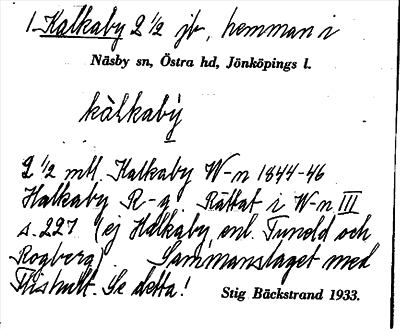 1. Kalkaby 2 1/2 jb, hemman i
Näsby sn, Östra hd, Jönköpings l.
kàlkaby̲
2 1/2 mtl. Kalkaby W-n 1844-46
Halkaby R-g Rättat i W-n III
s. 227 (ej Halkaby, enl. Tuneld och
Rogberg). Sammanslaget med
Thishult. Se detta!
Stig Bäckstrand 1933.